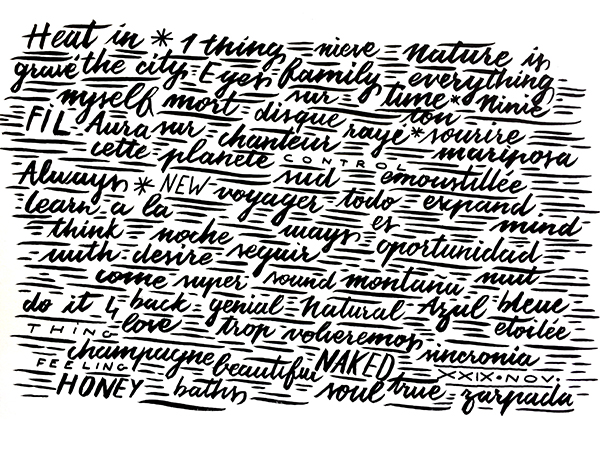 Heat in * 1 thing nieve nature is
gravé the city Eyes family everything
myself mort sur time * Ninie
FIL Aura sur disque ton
chanteur rayé * sourire
cette planète CONTROL mariposa
Always * NEW sud émoustillée
voyager todo expand
learn a la mind
think noche ways es oportunidad
with desire seguir
come super sound montaña nuit
do it 4 back genial Natural Azul bleue
THING love trop volveremos étoilée
champagne sincronia
FEELING beautiful NAKED XXIX • NOV.
HONEY baths soul true zarpada